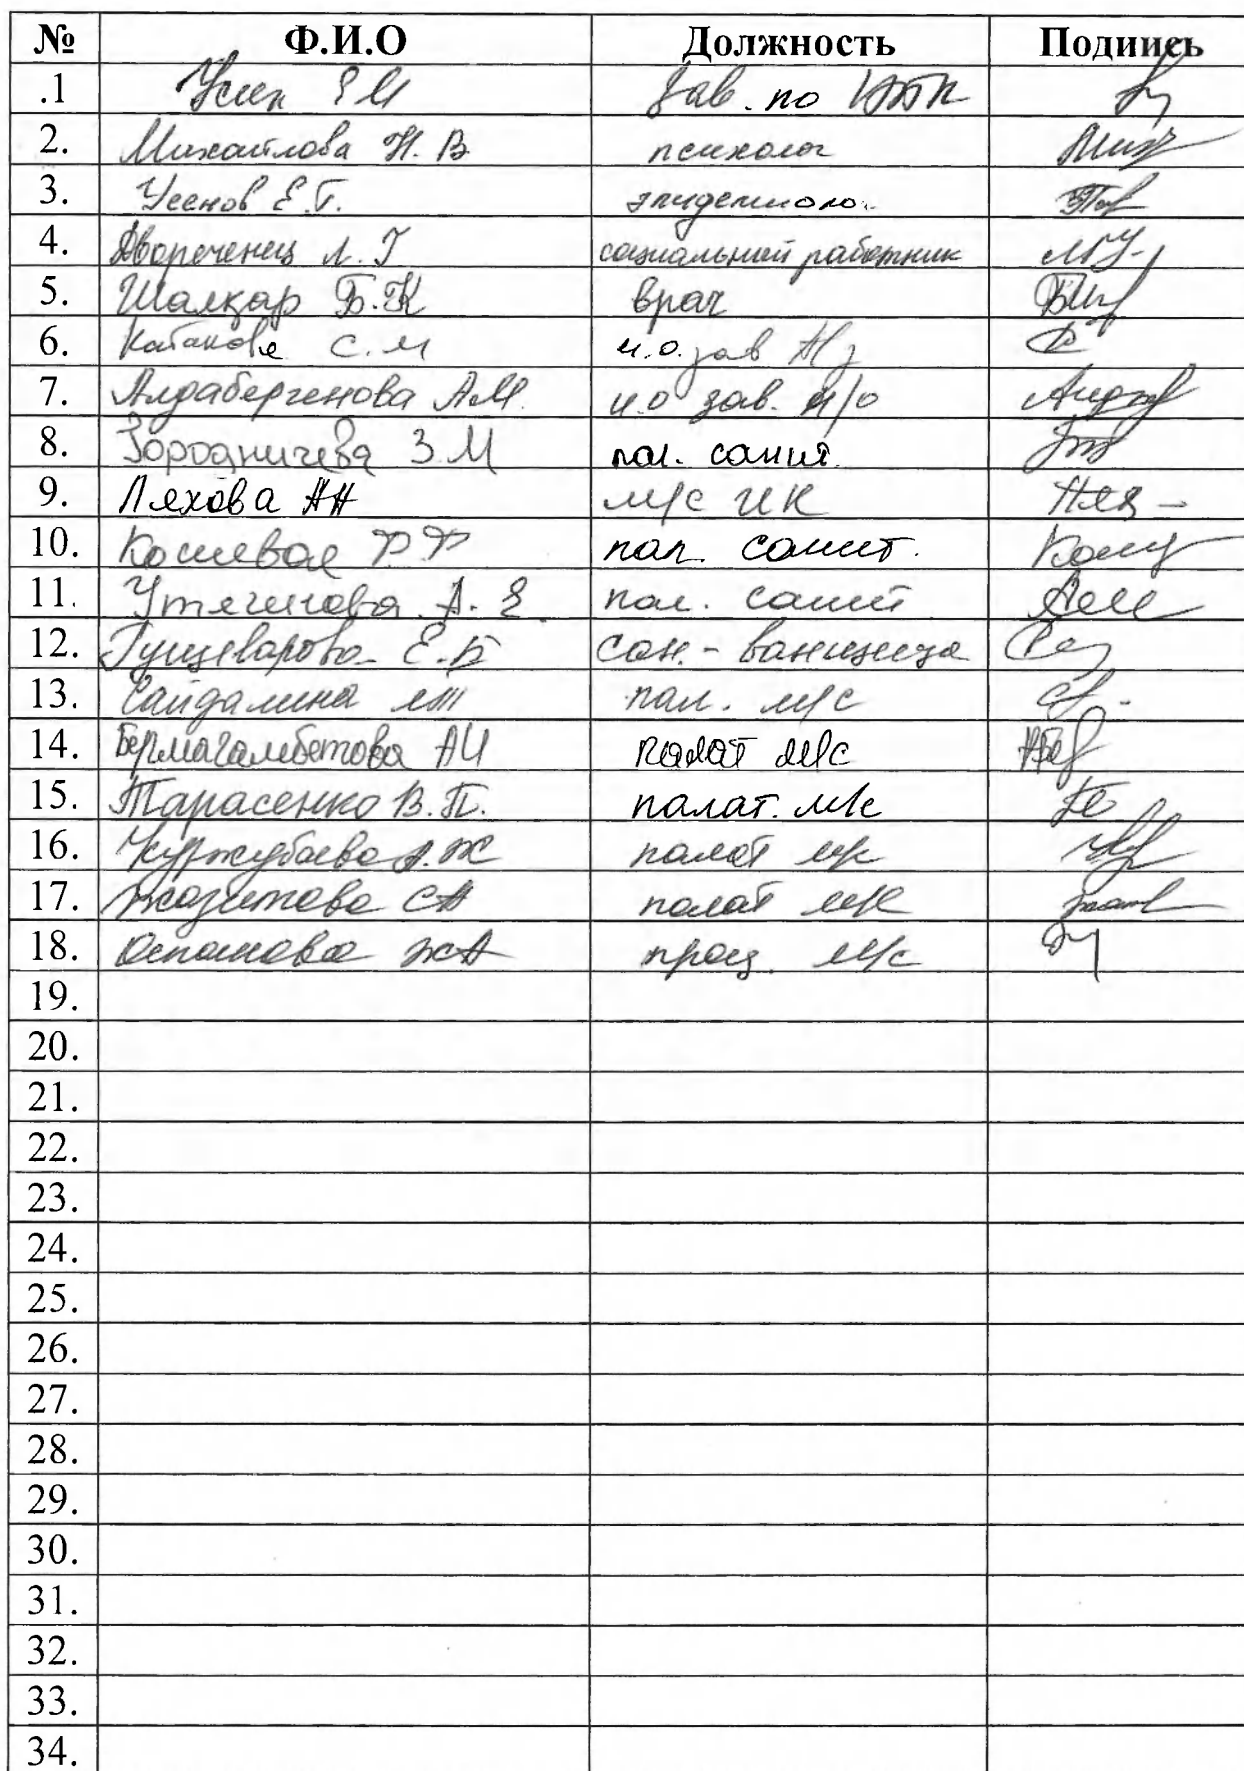 № Ф.И.О Должность Подпись
.1 Усен Е М Зав. по
2. Михайлова Н. В психолог
3. Усенов Е.Т. эпидемиоло.
4. Двореченец Л. Г социальный работник
5. Шалқар Б. К врач
6. Катанова С. М и.о. зав
7. Алдабергенова А.М. и.о зав. м/о
8. Городничева З. М пал. санит.
9. Ляхова АН м/с ИК
10. Кошевая РР пал. санит.
11. Утегенова А. Е пал. санит
12. Е.Б сан. - ванщица
13. Сайдалина пал. м/с
14. Бермагамбетова АИ палат м/с
15. Тарасенко В. П. палат. м/с
16. Куржубаева А. Ж палат м/с
17. Жазитова СА палат м/с
18. Оспанова ЖА проц. м/с
19.
20.
21.
22.
23.
24.
25.
26.
27.
28.
29.
30.
31.
32.
33.
34.